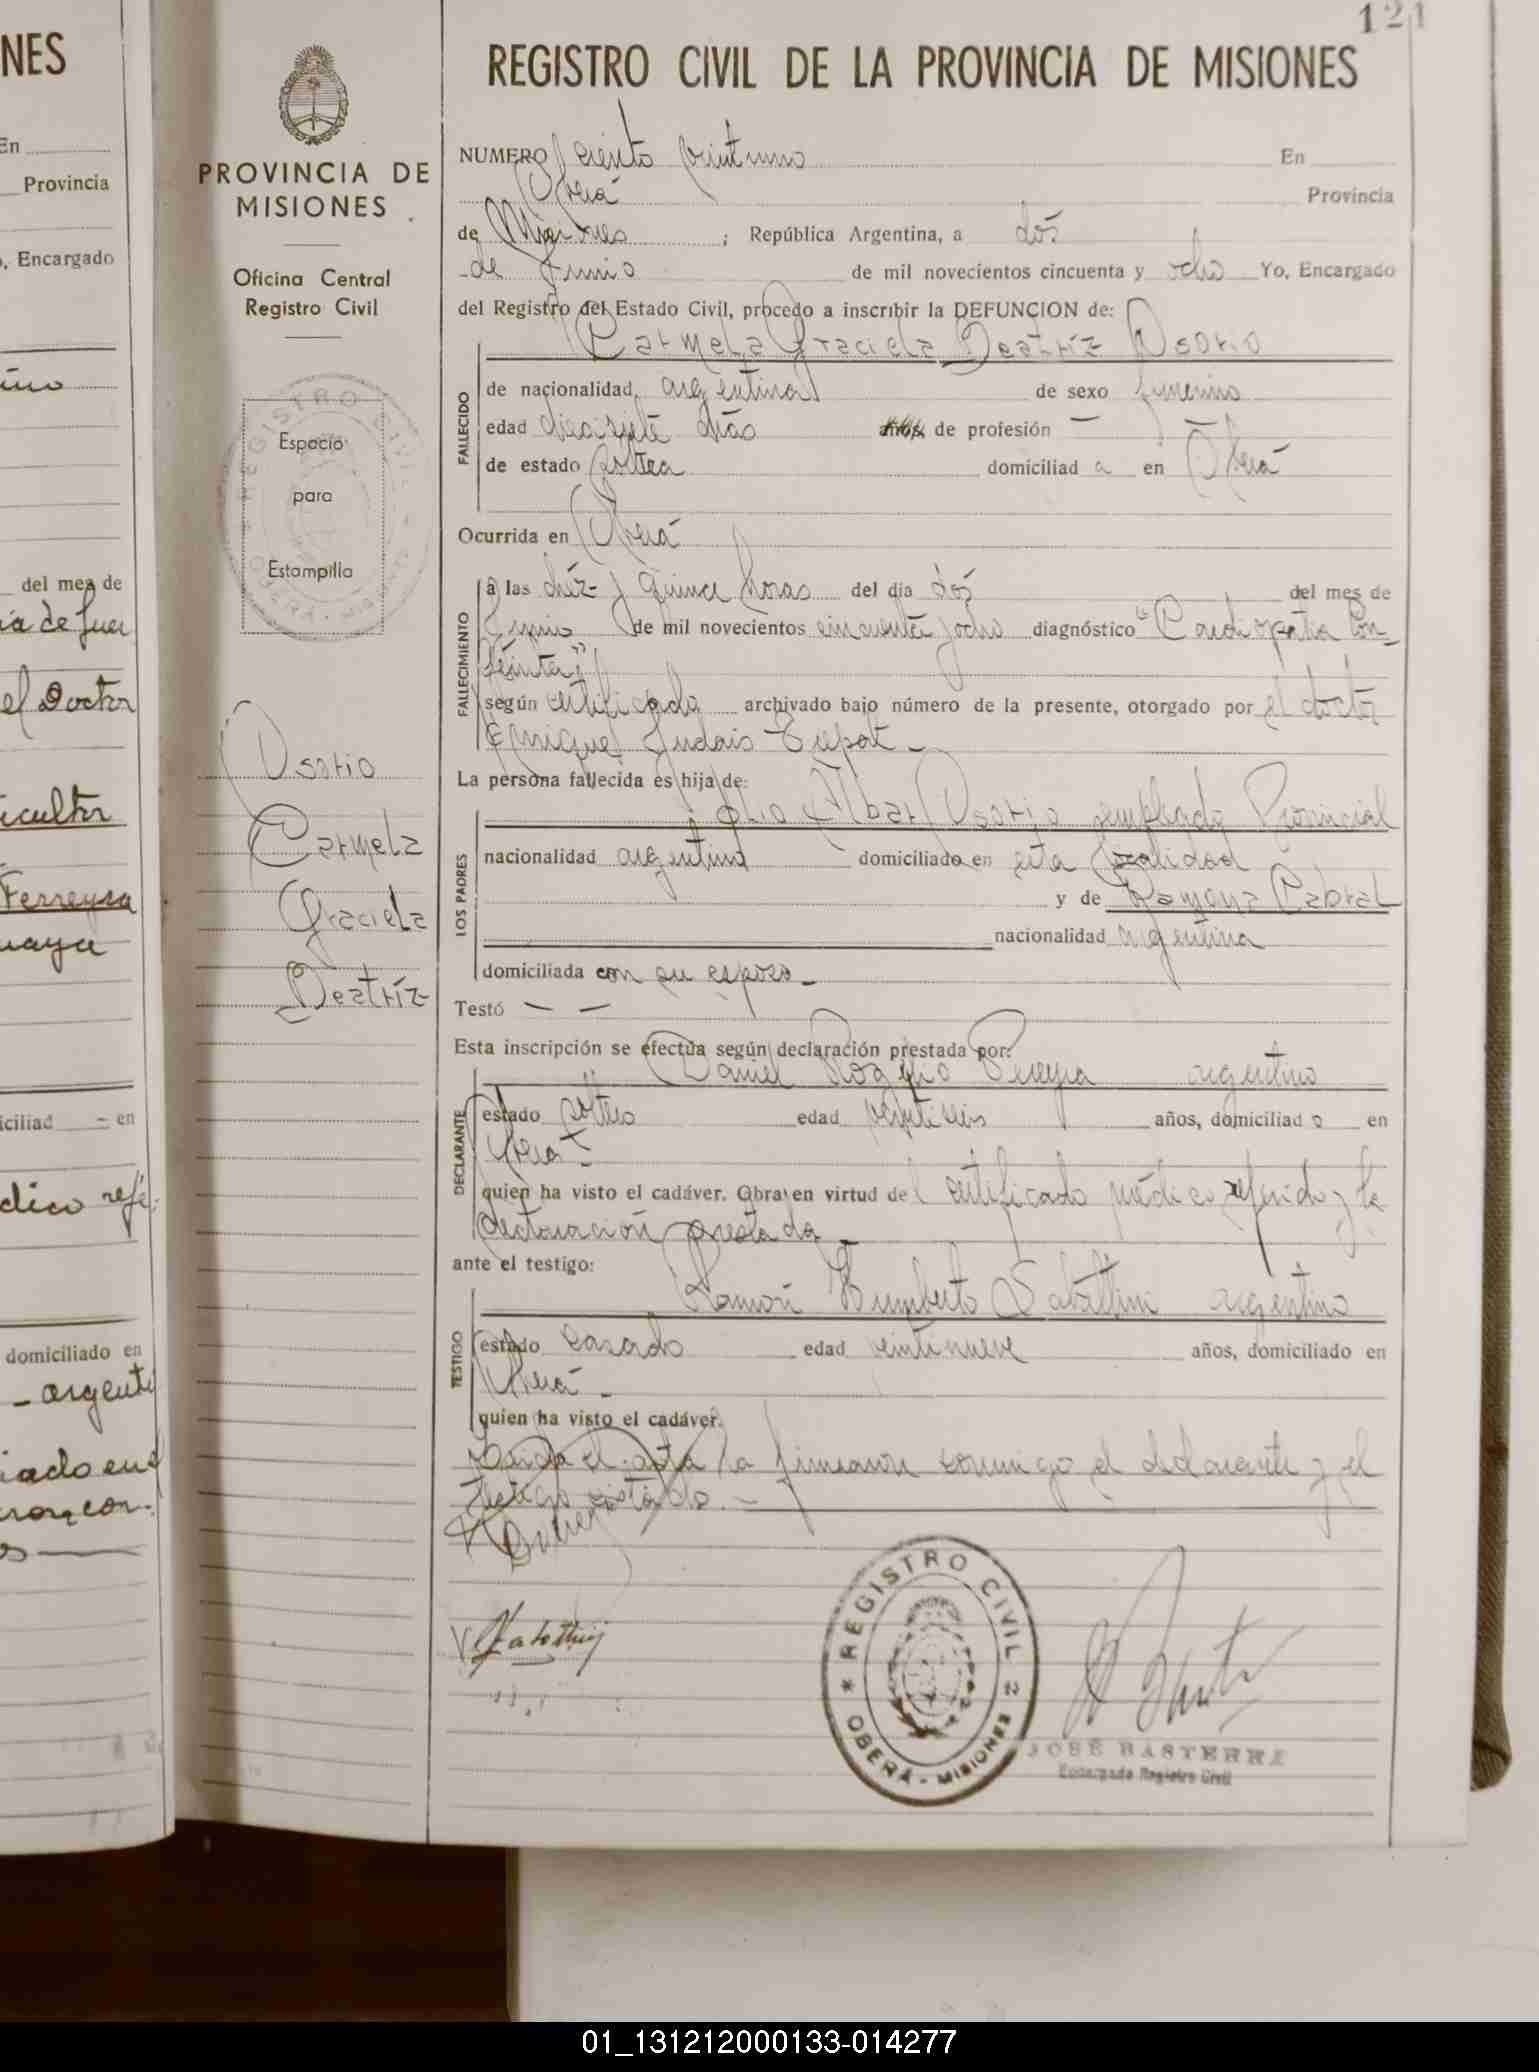 121
REGISTRO CIVIL DE LA PROVINCIA DE MISIONES
NUMERO ciento veintiuno En
Oberá Provincia
de Misiones ; República Argentina, a dos
de Junio de mil novecientos cincuenta y ocho Yo, Encargado
del Registro del Estado Civil, procedo a inscribir la DEFUNCION de:
Carmela Graciela Beatríz Osorio
FALLECIDO
de nacionalidad argentina de sexo femenino
edad diecisiete días años, de profesión —
de estado soltera domiciliad a en Oberá
Ocurrida en Oberá
FALLECIMIENTO
a las diéz y quince horas del día dós del mes de
Junio de mil novecientos cincuenta y ocho diagnóstico "Cardiopatía Con-
génita"
según certificado archivado bajo número de la presente, otorgado por el doctor
Enrique Judais
La persona fallecida es hija de:
LOS PADRES
Osorio empleado Provincial
nacionalidad argentino domiciliado en esta localidad
y de Ramona Cabral
nacionalidad argentina
domiciliada con su esposo.-
Testó — —
Esta inscripción se efectúa según declaración prestada por:
DECLARANTE
Daniel Rogelio Pereyra argentino
estado soltero edad veintiseis años, domiciliad o en
Oberá.-
quien ha visto el cadáver. Obra en virtud del certificado médico referido y la
declaración prestada.-
ante el testigo:
TESTIGO
Ramón Humberto Sabattini argentino
estado casado edad veintinueve años, domiciliado en
Oberá.-
quien ha visto el cadáver.
Leida el acta la firmaron conmigo el declarante y el
testigo citado.—
REGISTRO CIVIL
OBERÁ - MISIONES
JOSÉ BASTERRA
Encargado Registro Civil
PROVINCIA DE
MISIONES
Oficina Central
Registro Civil
Espacio
para
Estampilla
Osorio
Carmela
Graciela
Beatríz
NES
En
Provincia
o, Encargado
del mes de
ia de Juer
el Doctor
icultor
Ferreyra
uaya
iciliad — en
dico refe-
domiciliado en
- argenti
iado en
con.
01_131212000133-014277